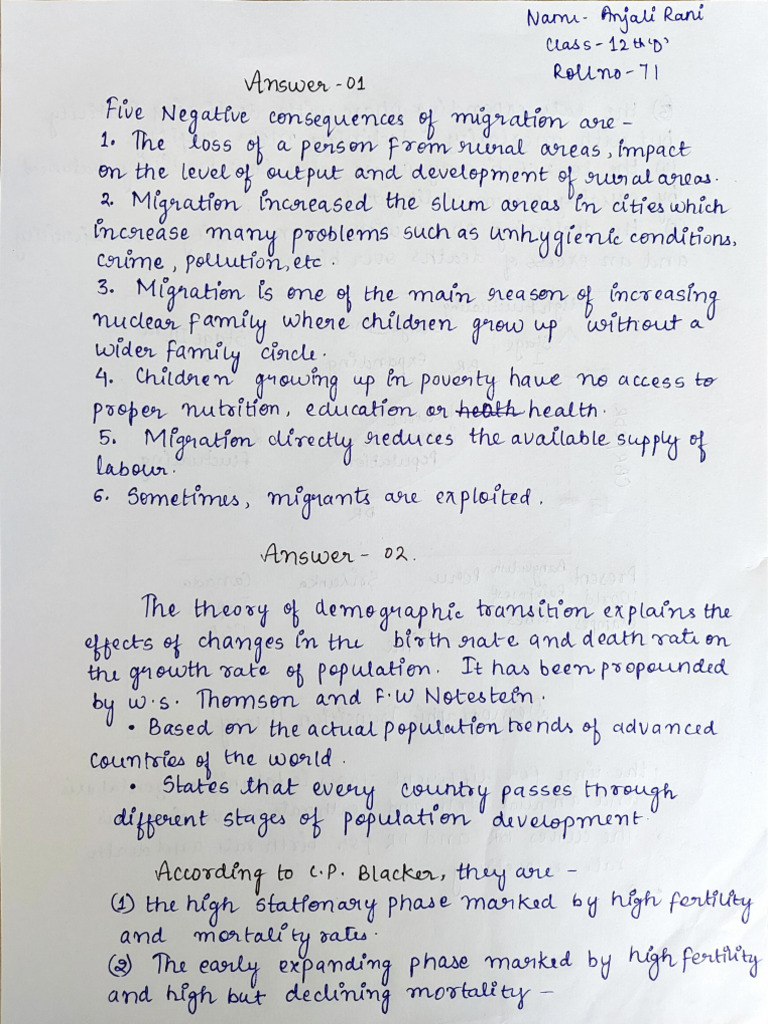 Name - Anjali Rani
Class - 12th 'D'
Roll no - 71
Answer - 01
Five Negative consequences of migration are -
1. The loss of a person from rural areas, impact
on the level of output and development of rural areas.
2. Migration increased the slum areas in cities which
increase many problems such as unhygienic conditions,
crime, pollution, etc.
3. Migration is one of the main reason of increasing
nuclear family where children grow up without a
wider family circle.
4. Children growing up in poverty have no access to
proper nutrition, education or health health.
5. Migration directly reduces the available supply of
labour.
6. Sometimes, migrants are exploited.
Answer - 02.
The theory of demographic transition explains the
effects of changes in the birth rate and death rate on
the growth rate of population. It has been propounded
by W.S. Thomson and F.W Notestein.
• Based on the actual population trends of advanced
countries of the world.
• States that every country passes through
different stages of population development.
According to C.P. Blacker, they are -
(1) the high stationary phase marked by high fertility
and mortality rates.
(2) The early expanding phase marked by high fertility
and high but declining mortality -